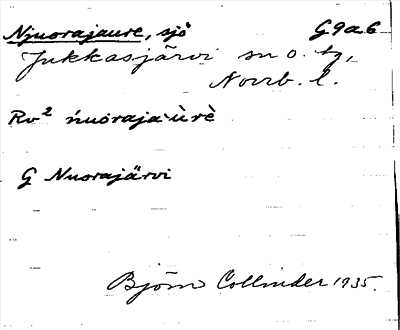 Njuorajaure, sjö G9a6
Jukkasjärvi sn o. tg,
Norrb. l.
Rv² ńuoraja·ùrè
G Nuorajärvi
Björn Collinder 1935.